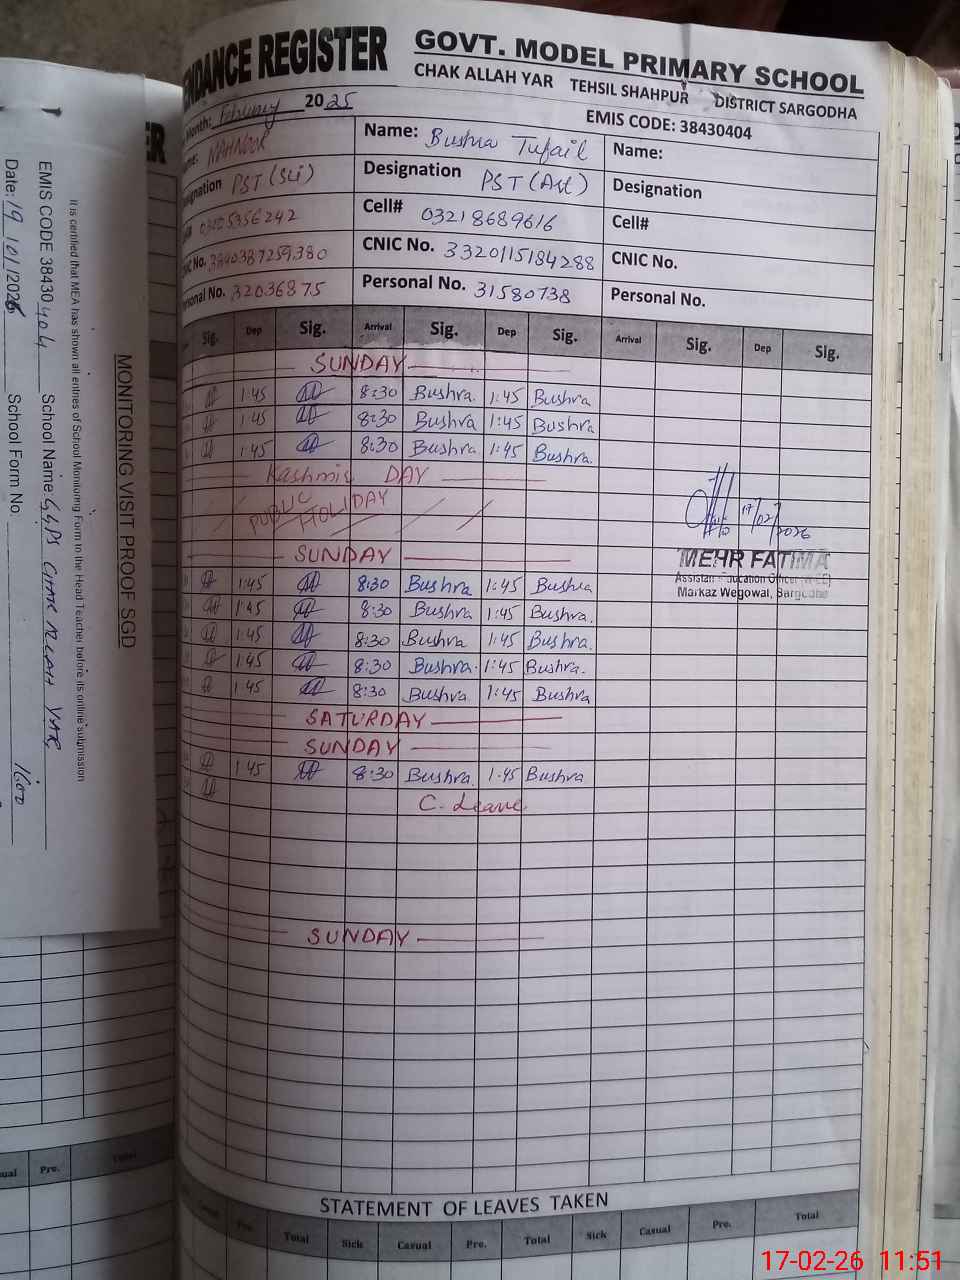 NDANCE REGISTER
GOVT. MODEL PRIMARY SCHOOL
CHAK ALLAH YAR TEHSIL SHAHPUR DISTRICT SARGODHA
Month: February 2025
EMIS CODE: 38430404
MAHNOOR
Name: Bushra Tufail
Name:
PST (Sci)
Designation PST (Art)
Designation
03005356242
Cell# 03218689616
Cell#
CNIC No. 3840387259380
CNIC No. 3320115184288
CNIC No.
Personal No. 32036875
Personal No. 31580738
Personal No.
Sig. Dep Sig. Arrival Sig. Dep Sig. Arrival Sig. Dep Sig.
SUNDAY
1:45 8:30 Bushra 1:45 Bushra
1:45 8:30 Bushra 1:45 Bushra
1:45 8:30 Bushra 1:45 Bushra.
Kashmir DAY
PUBLIC HOLIDAY
SUNDAY
1:45 8:30 Bushra 1:45 Bushra
1:45 8:30 Bushra 1:45 Bushra.
1:45 8:30 Bushra 1:45 Bushra.
1:45 8:30 Bushra. 1:45 Bushra.
1:45 8:30 Bushra 1:45 Bushra
SATURDAY
SUNDAY
1:45 8:30 Bushra 1.45 Bushra
C. Leave
SUNDAY
17/02/2026
MEHR FATIMA
Markaz Wegowal, Sargodha
STATEMENT OF LEAVES TAKEN
Casual Pre. Total Sick Casual Pre. Total Sick Casual Pre. Total
17-02-26 11:51
MONITORING VISIT PROOF SGD
It is certified that MEA has shown all entries of School Monitoring Form to the Head Teacher before its online submission
EMIS CODE 38430404 School Name: GGPS CHAK ALLAH YAR
School Form No.
Pre. Total